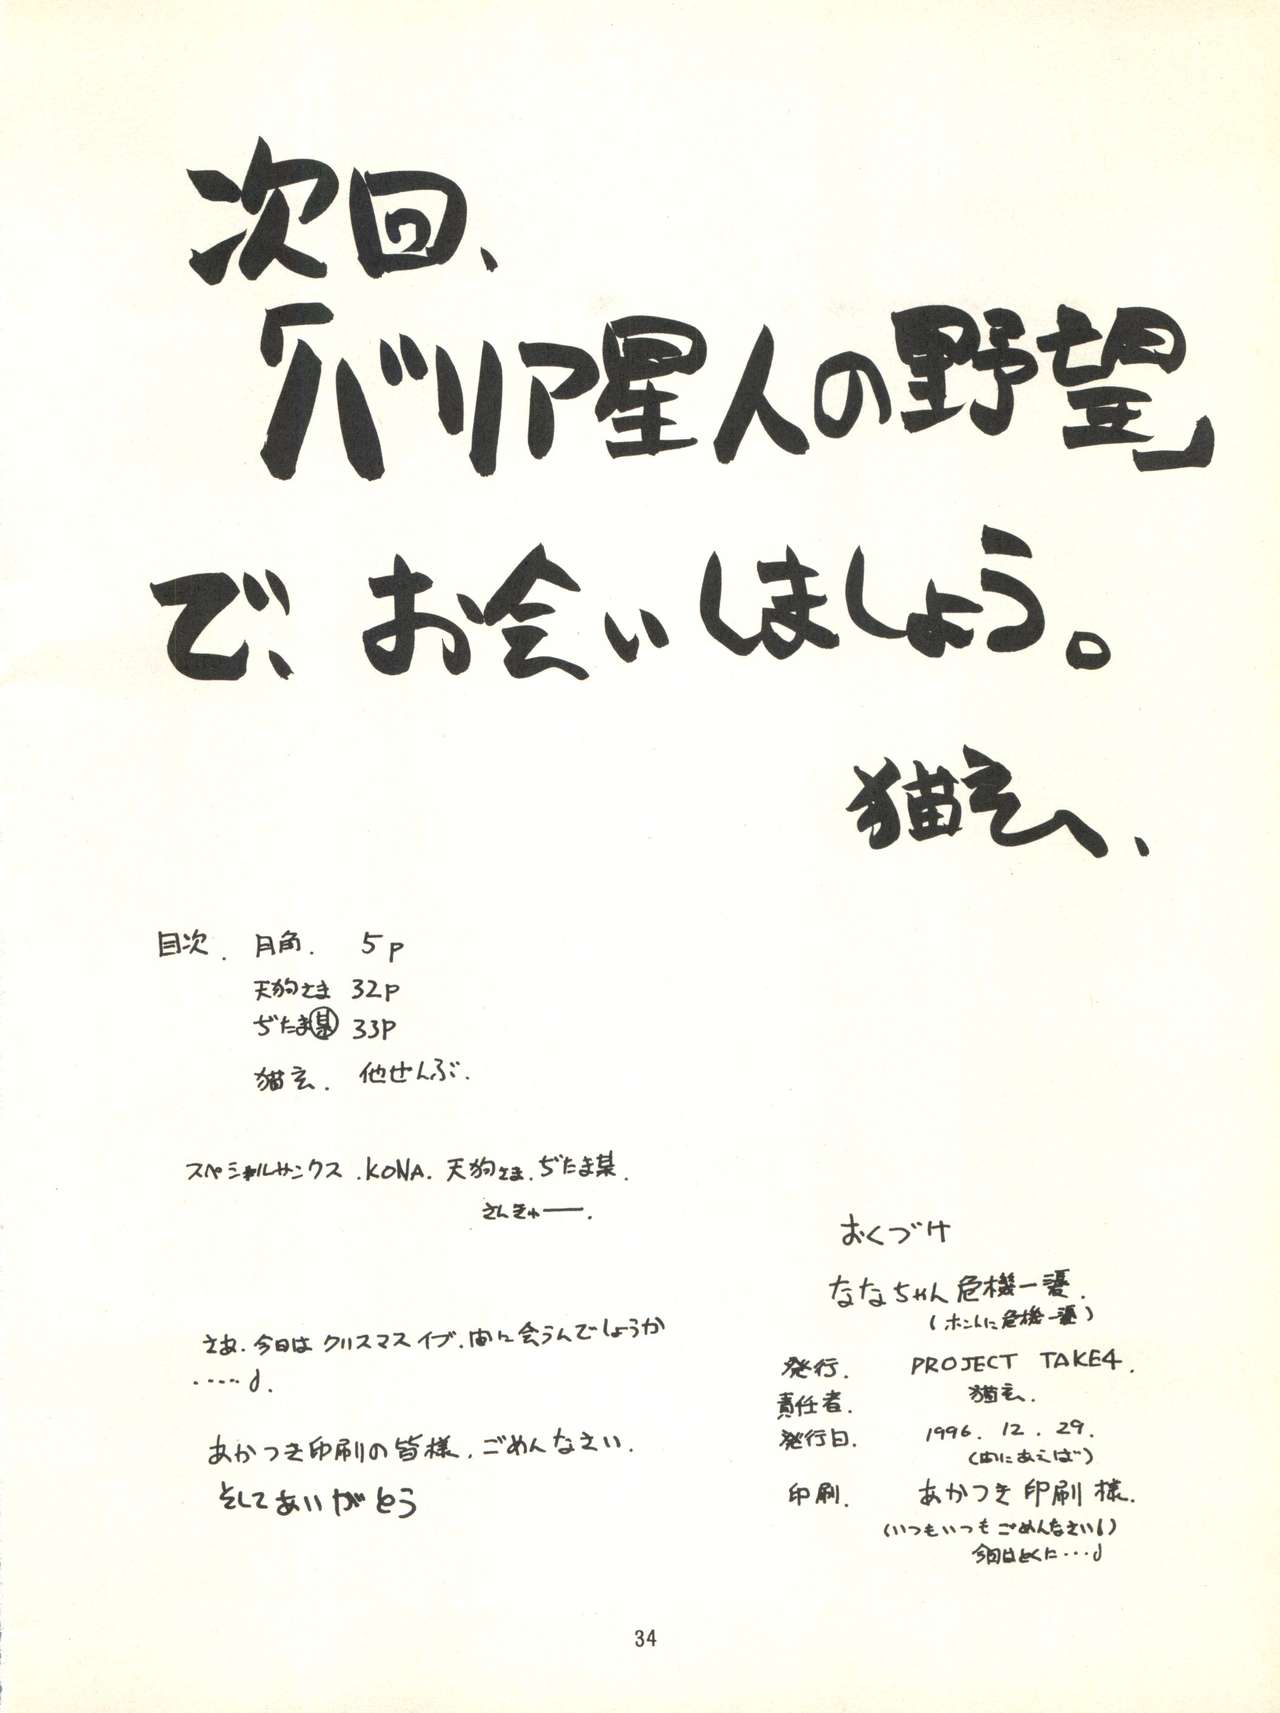 次回、
「バリア星人の野望」
で、お会いしましょう。
猫玄、
目次. 月角. 5p
天狗さま 32p
ぢたま某 33p
猫玄. 他せんぶ.
スペシャルサンクス.KONA.天狗さま.ぢたま某.
さんきゅー.
さあ.今日はクリスマスイブ.間に会うんでしょうか
‥‥‥♪.
あかつき印刷の皆様.ごめんなさい.
そしてありがとう
おくづけ
ななちゃん危機一
(ホントに危機一
発行. PROJECT TAKE4.
責任者. 猫玄.
発行日. 1996. 12. 29.
(間にあえば)
印刷. あかつき印刷様.
(いつもいつもごめんなさい!)
今回はとくに・・・♪
34